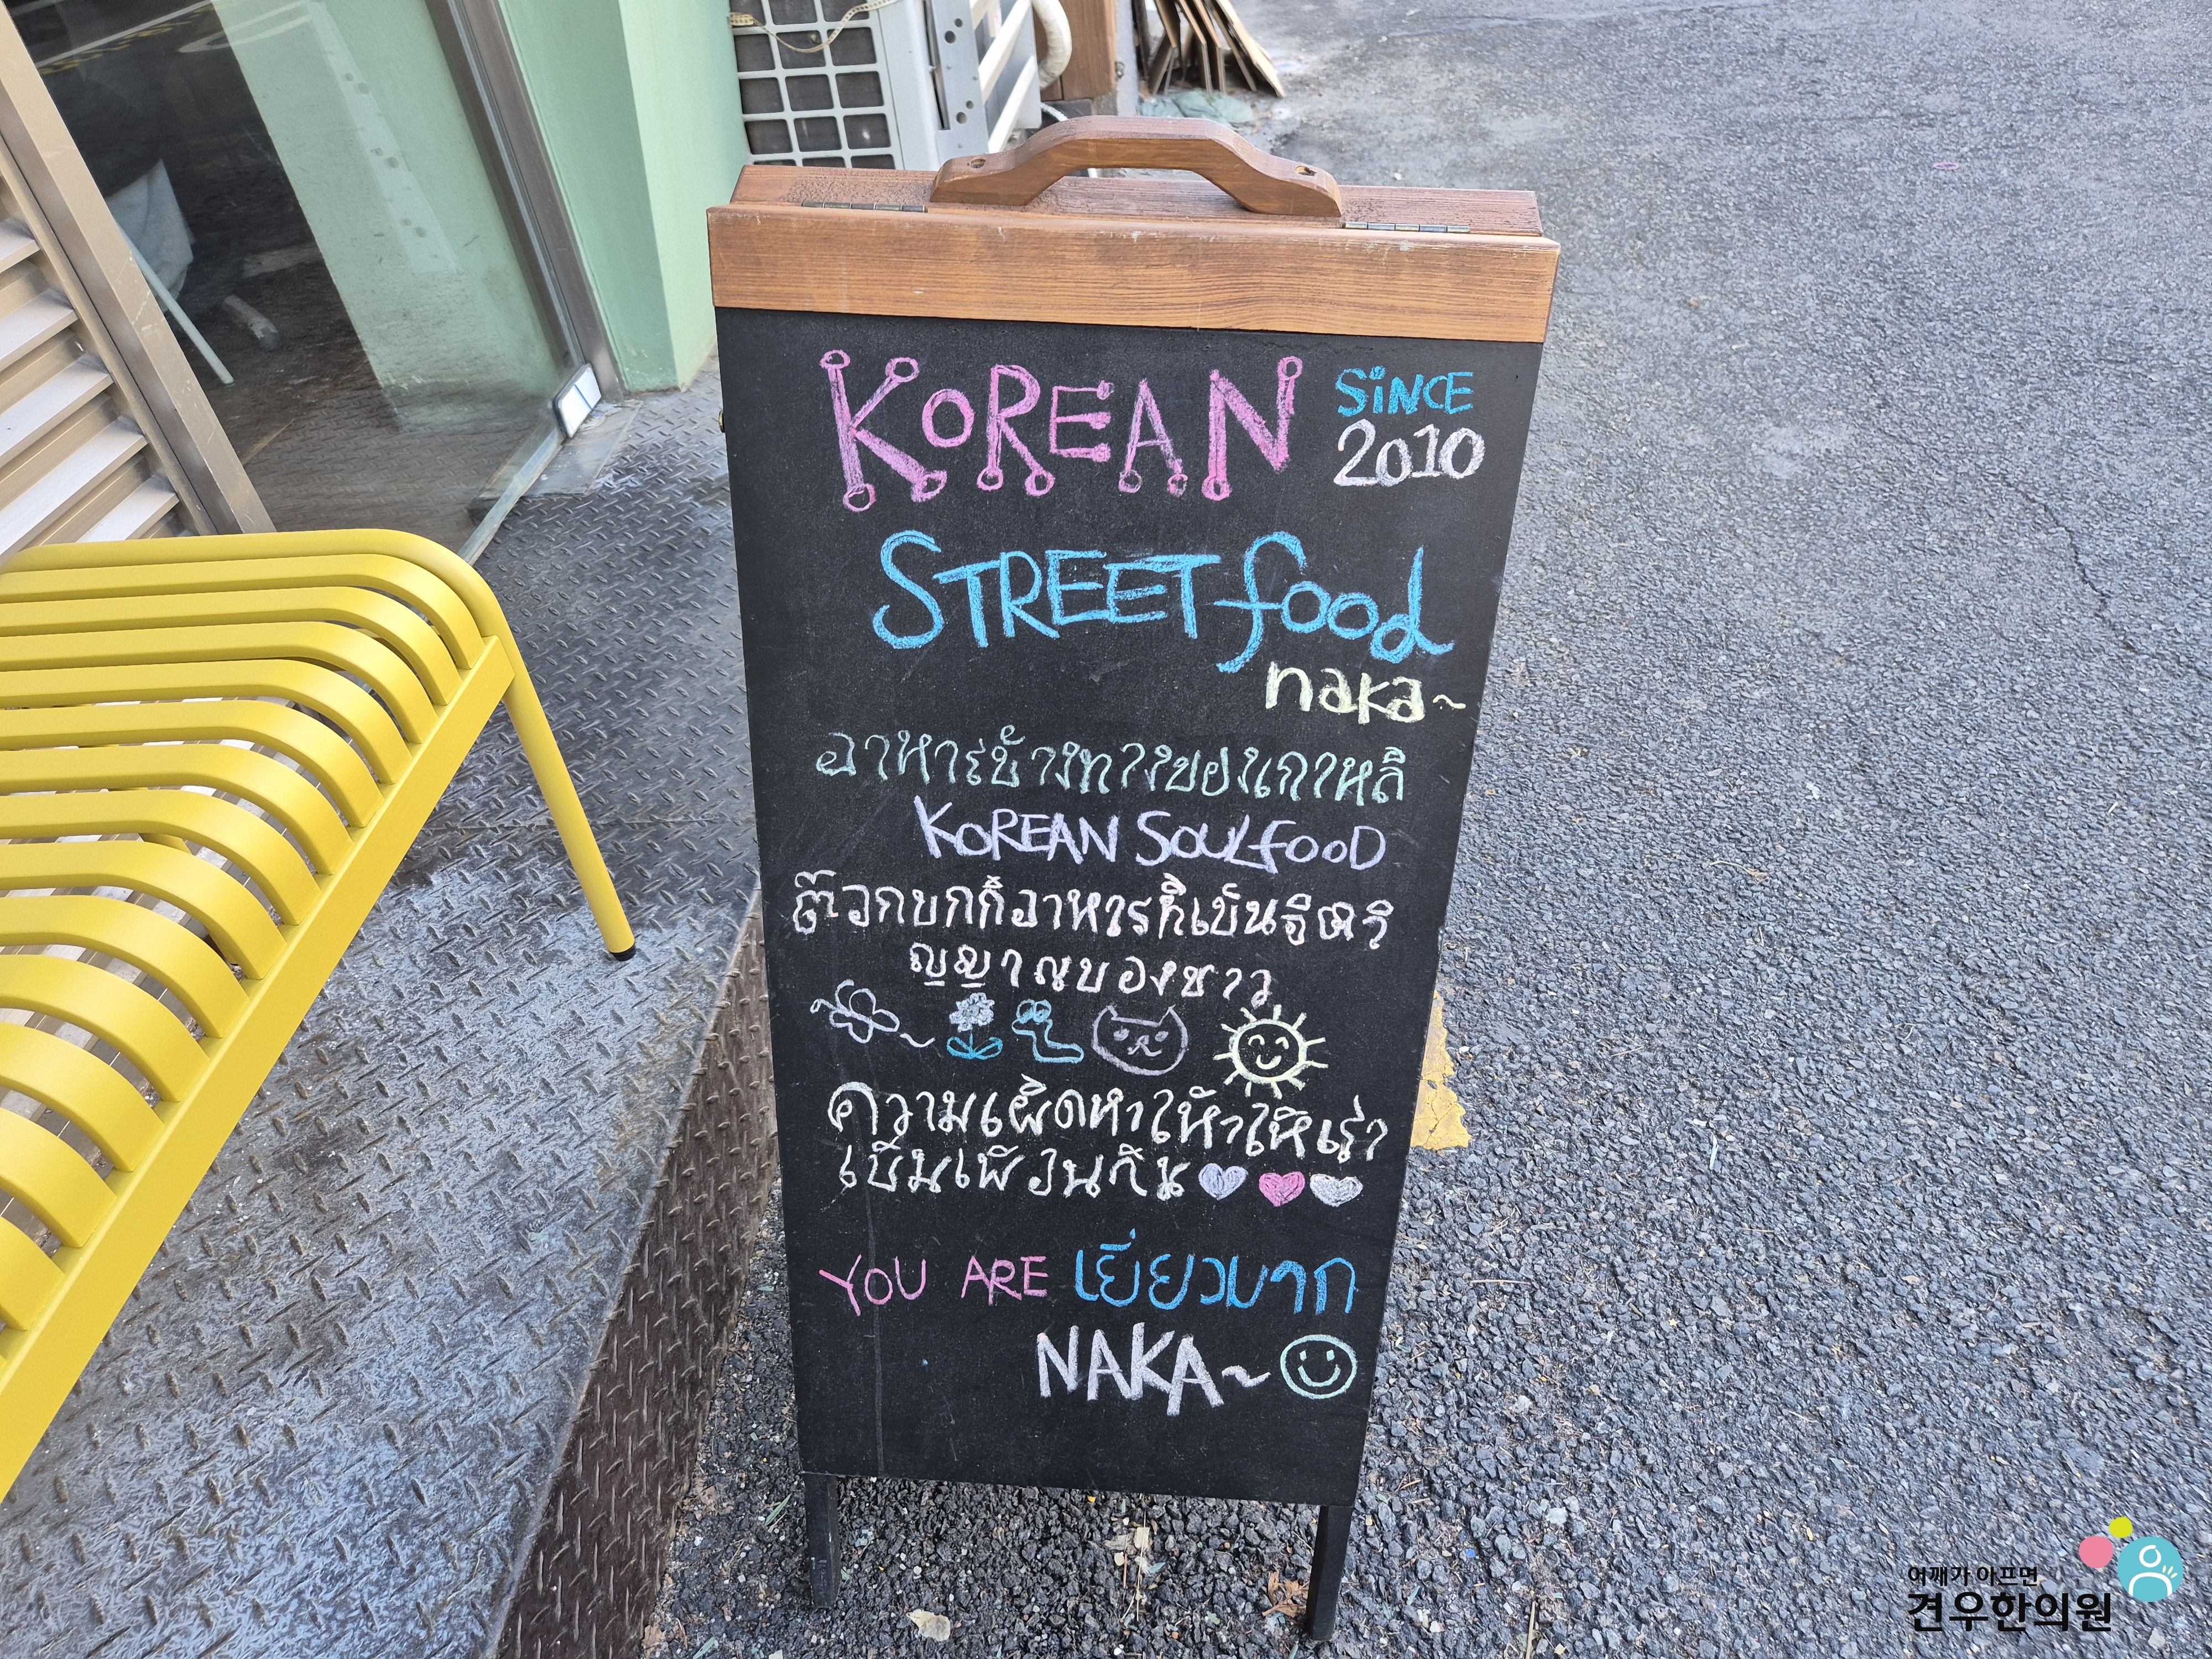 KOREAN SINCE 2010
STREET food
naka~
อาหารข้างทางของเกาหลี
KOREAN SOULFOOD
ต๊อกบกกี้อาหารที่เป็นจิตวิ
ญญาณของชาว
ความเผ็ดทำให้
เป็นเพื่อนกัน
YOU ARE เยี่ยวมาก
NAKA~
어깨가 아프면
견우한의원